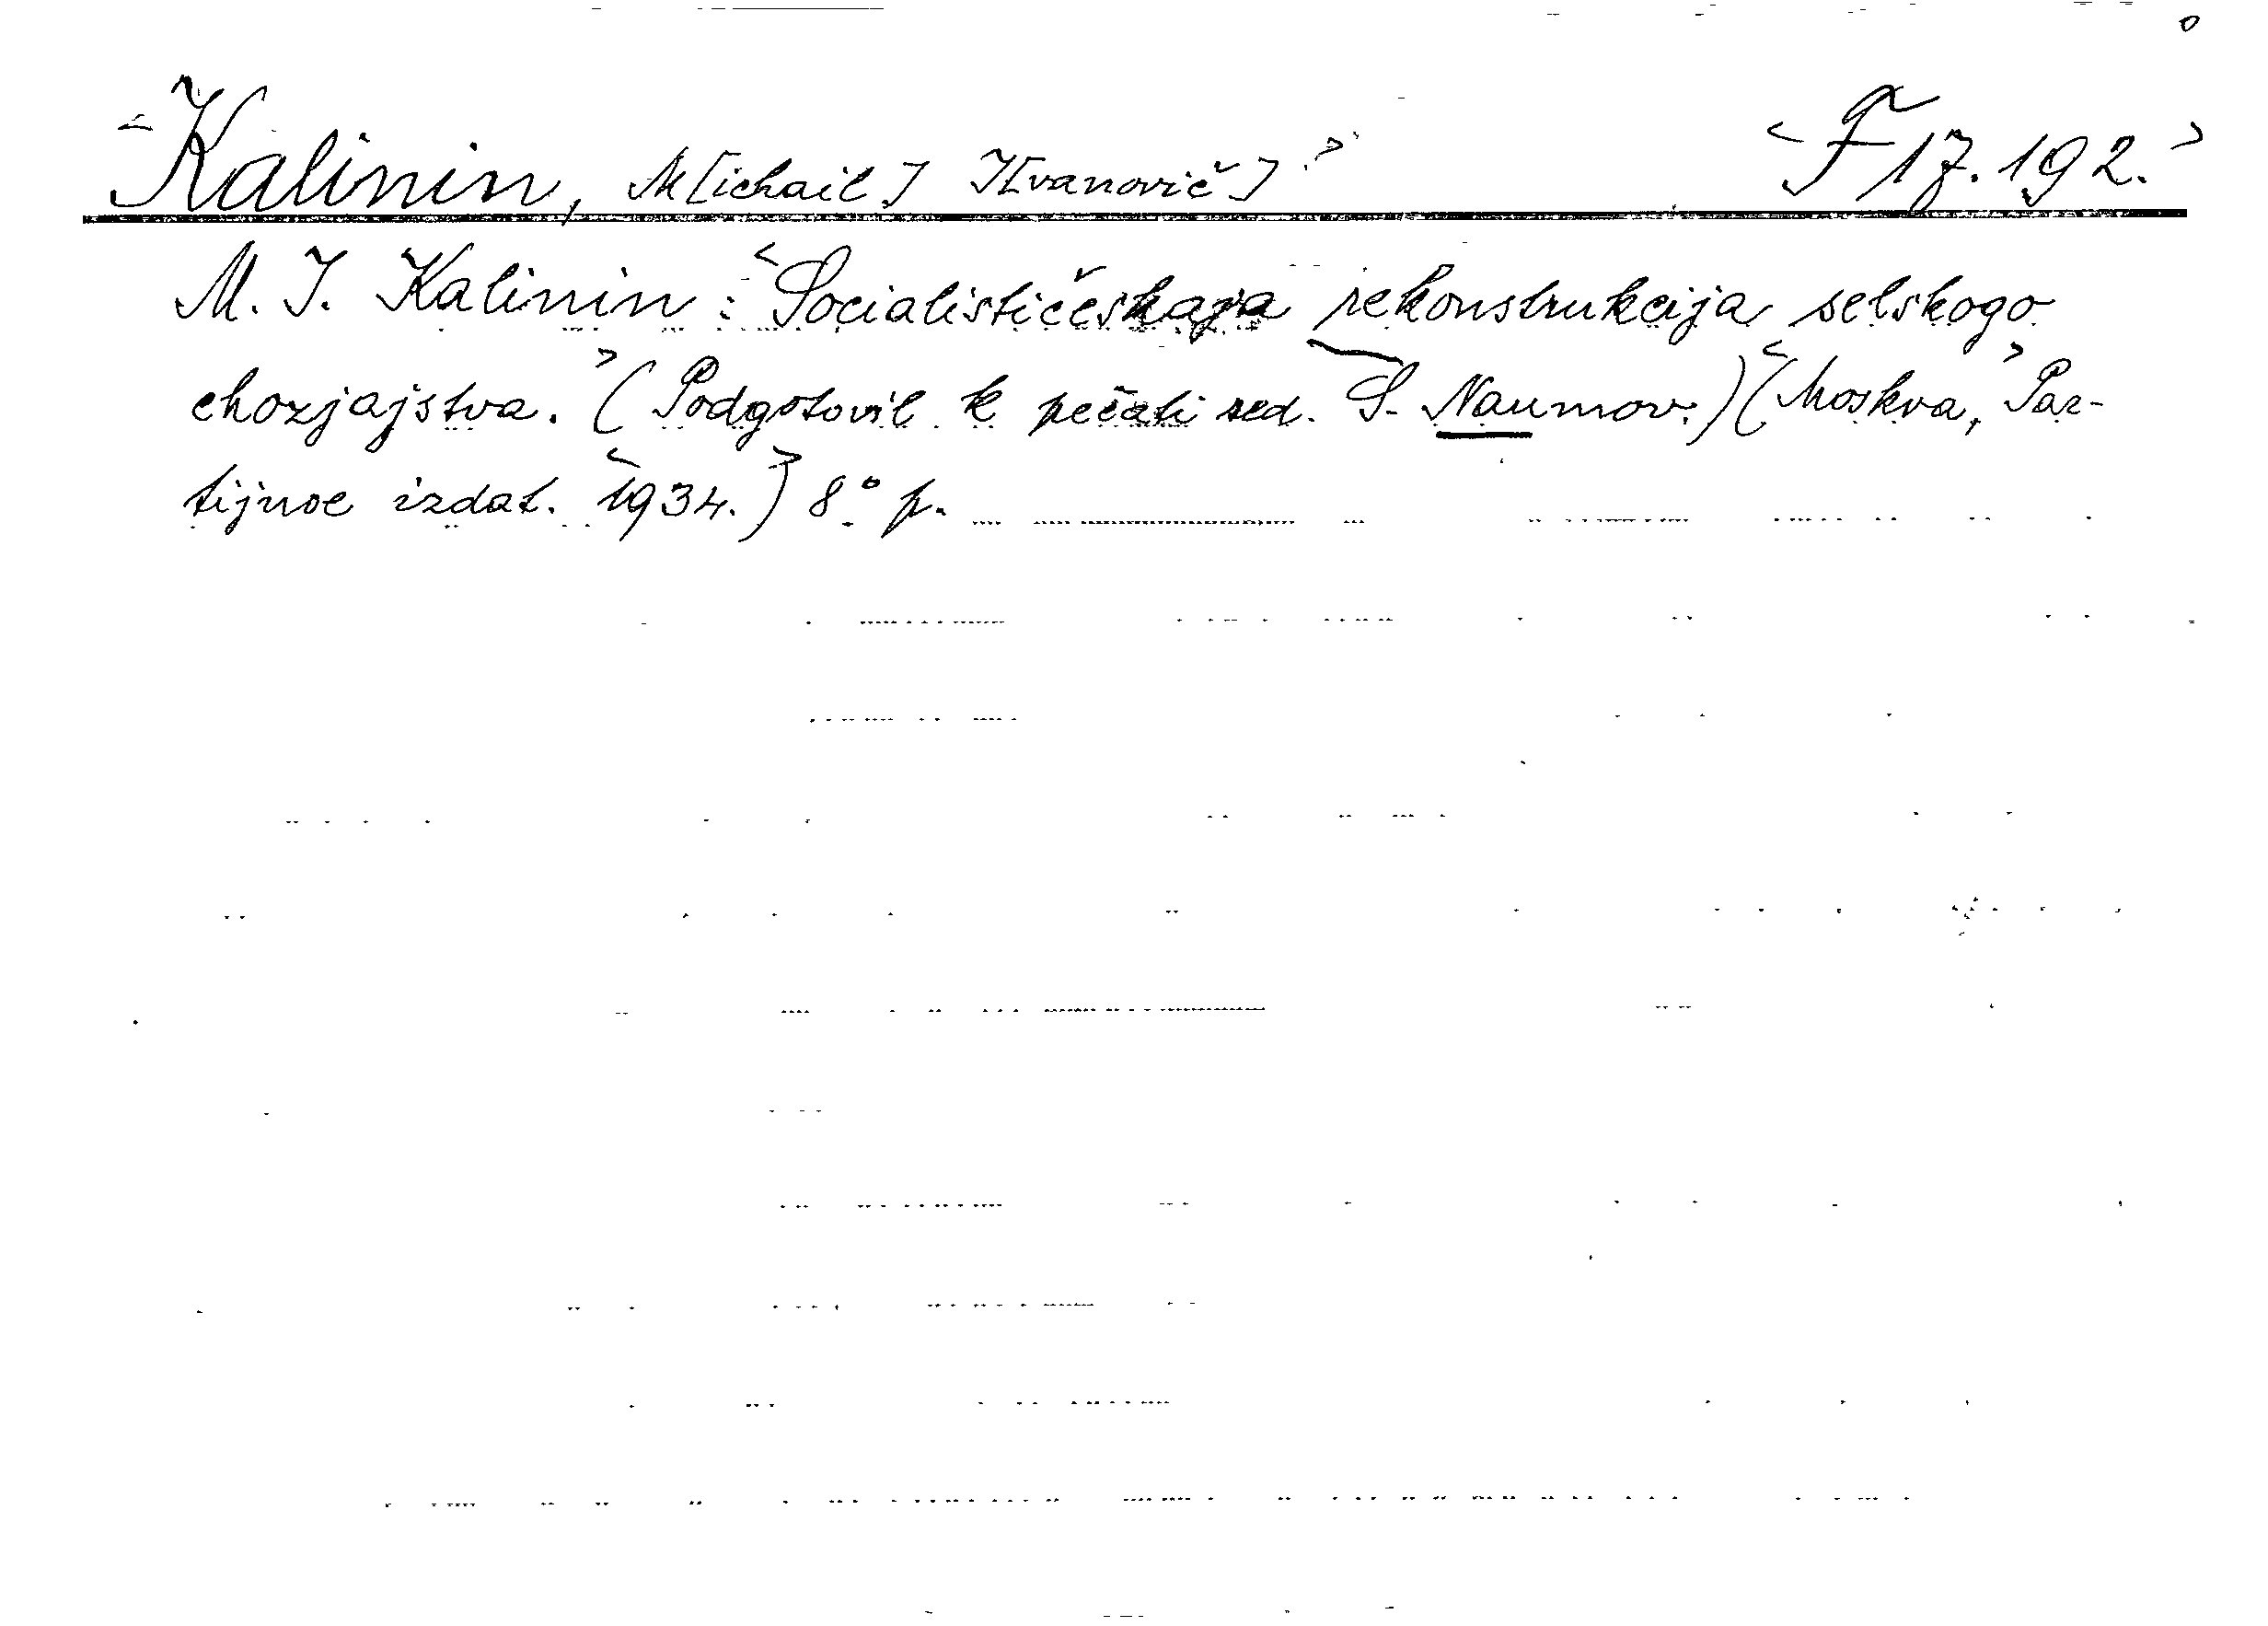 <Kalinin, M[ichail] I[vanovič]> <F 17.192.>
M. I. Kalinin: <Socialističeskaja rekonstrukcija selskogo
chozjajstva.> (Podgotovil k pečati red. S. Naumov.) (<Moskva,> Par-
tijnoe izdat. <1934.>) 8° p.